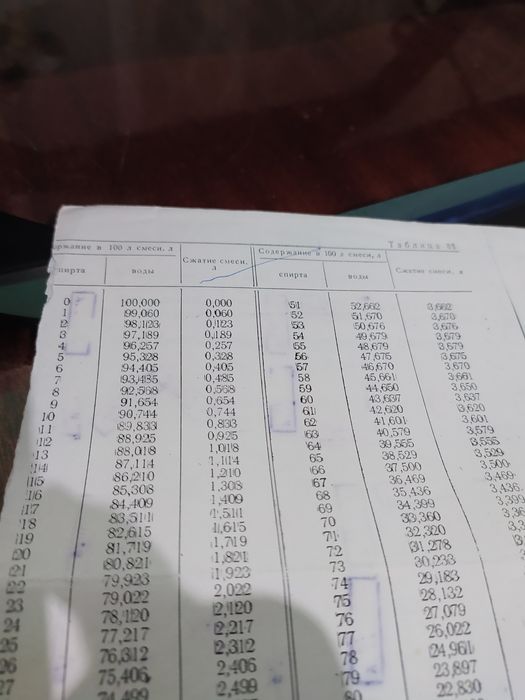 Таблица
ржание в 100 л смеси, л Сжатие смеси, л Содержание в 100 л смеси, л Сжатие смеси, л
спирта воды спирта воды
0 100,000 0,000 51 52,662 3,662
1 99,060 0,060 52 51,670 3,670
2 98,123 0,123 53 50,676 3,676
3 97,189 0,189 54 49,679 3,679
4 96,257 0,257 55 48,679 3,679
5 95,328 0,328 56 47,675 3,675
6 94,405 0,405 57 46,670 3,670
7 93,485 0,485 58 45,661 3,661
8 92,568 0,568 59 44,650 3,650
9 91,654 0,654 60 43,637 3,637
10 90,744 0,744 61 42,620 3,620
11 89,833 0,833 62 41,601 3,601
12 88,925 0,925 63 40,579 3,579
13 88,018 1,018 64 39,555 3,555
14 87,114 1,114 65 38,529 3,529
15 86,210 1,210 66 37,500 3,500
16 85,308 1,308 67 36,469 3,469
17 84,409 1,409 68 35,436 3,436
18 83,511 1,511 69 34,399 3,399
19 82,615 1,615 70 33,360
20 81,719 1,719 71 32,320
21 80,821 1,821 72 31,278
22 79,923 1,923 73 30,233
23 79,022 2,022 74 29,183
24 78,120 2,120 75 28,132
25 77,217 2,217 76 27,079
26 76,312 2,312 77 26,022
27 75,406 2,406 78 24,961
74,499 2,499 79 23,897
80 22,830